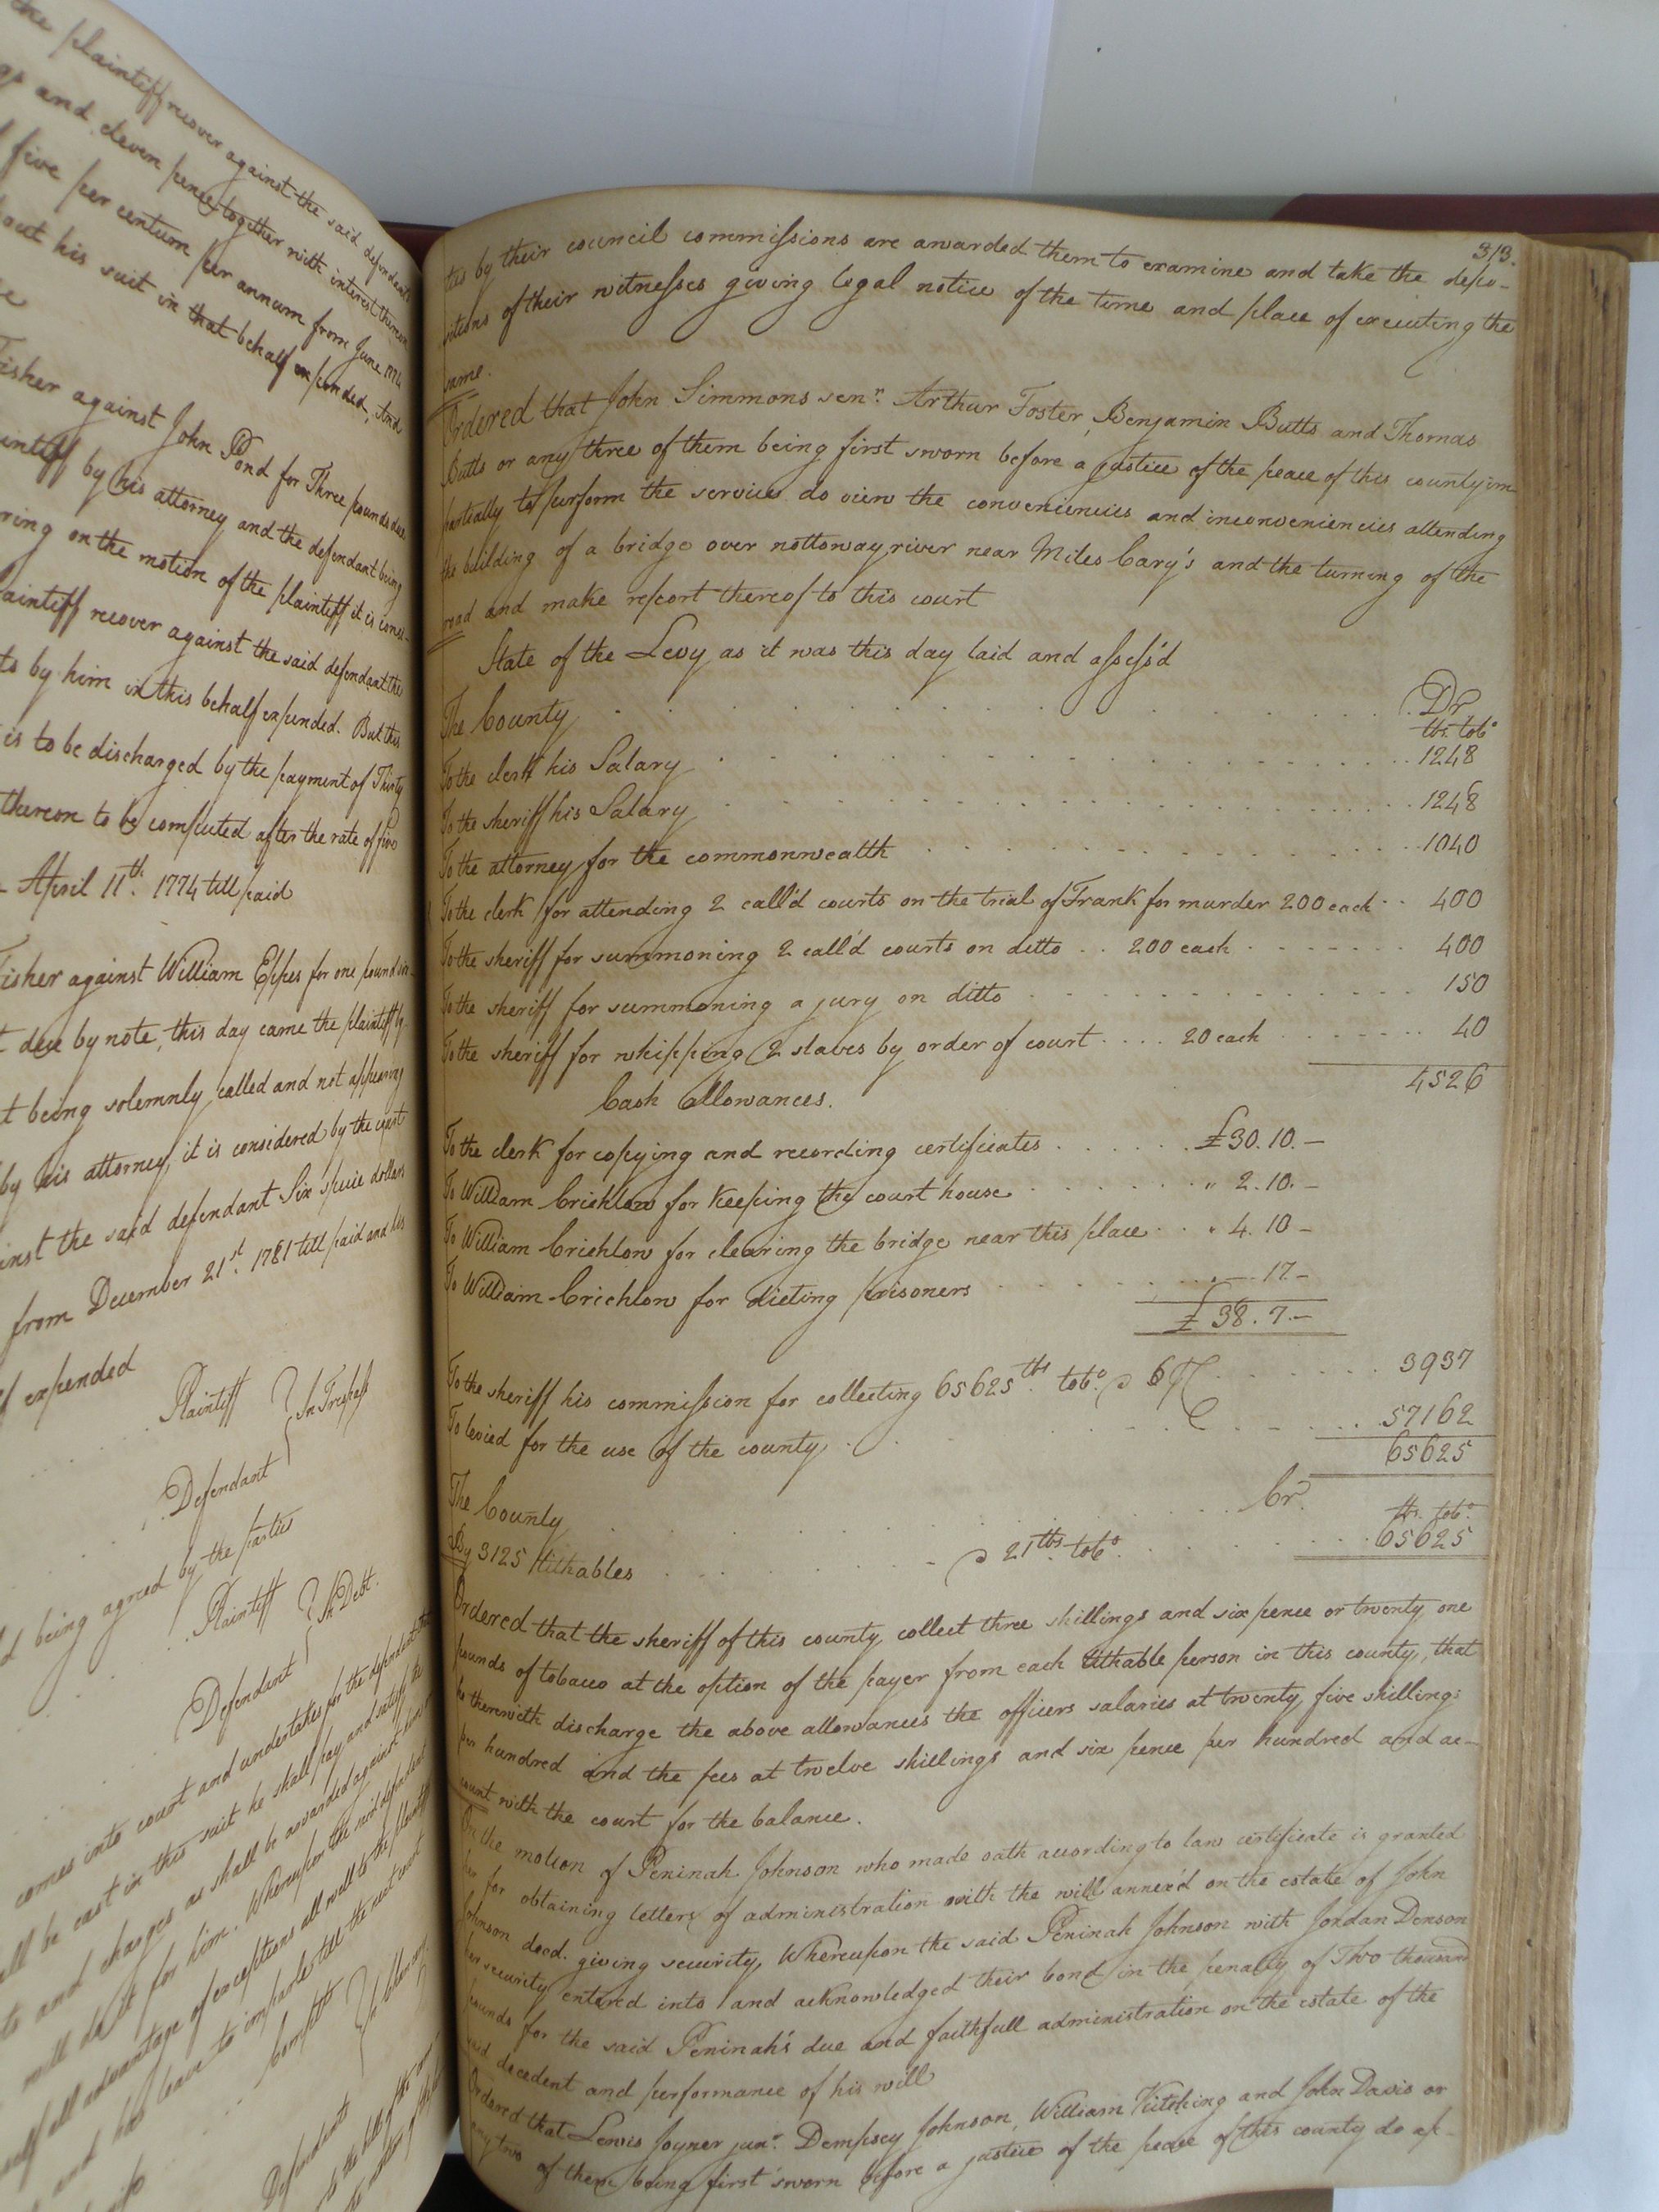 the plaintiff recover against the said defendant
and eleven pence together with interest thereon
five per centum per annum from June 1774
out his suit in that behalf expended, And
Fisher against John Pond for Three pounds due
by his attorney and the defendant being
ring on the motion of the plaintiff it is consi-
laintiff recover against the said defendant the
ts by him in this behalf expended. But this
is to be discharged by the payment of Thirty
thereon to be computed after the rate of five
April 11th. 1774 till paid
Fisher against William Eppes for one pound
due by note, this day came the plaintiff by
t being solemnly called and not appearing
by his attorney, it is considered by the court
inst the said defendant Six specie dollars
from December 21st. 1781 till paid and his
expended
Plaintiff } In Trespass
Defendant
being agreed by the parties
Plaintiff } In Debt.
Defendant
comes into court and undertakes for the defendant that
all be cast in this suit he shall pay and satisfy the
ts and charges as shall be awarded against
will do it for him. Whereupon the said defendant
self all advantage of exceptions all well to the plaintiff
and has leave to imparle till the next court
Defendants
313.
ties by their council commissions are awarded them to examine and take the depo-
sitions of their witnesses giving legal notice of the time and place of executing the
same.
Ordered that John Simmons senr. Arthur Foster, Benjamin Butts and Thomas
Butts or any three of them being first sworn before a justice of the peace of this county im
partially to perform the services do view the conveniencies and inconveniencies attending
the building of a bridge over nottoway river near Miles Cary's and the turning of the
road and make report thereof to this court
State of the Levy as it was this day laid and assess'd
The County . . . Dr
lbs. tobo
To the clerk his Salary . . . 1248
To the sheriff his Salary . . . 1248
To the attorney for the commonwealth . . . 1040
To the clerk for attending 2 call'd courts on the trial of Frank for murder 200 each . . 400
To the sheriff for summoning 2 call'd courts on ditto . . 200 each . . . 400
To the sheriff for summoning a jury on ditto . . . 150
To the sheriff for whipping 2 slaves by order of court . . . . 20 each . . . 40
4526
Cash Allowances.
To the clerk for copying and recording certificates . . . £30.10.—
To William Crichlow for keeping the court house . . . " 2.10.—
To William Crichlow for clearing the bridge near this place . . " 4.10—
To William Crichlow for dieting prisoners . . . " — 17—
£ 38.7.—
To the sheriff his commission for collecting 65625 lbs. tobo. 6 . . . 3937
To levied for the use of the county . . . 57162
65625
The County . . . Cr.
lbs. tobo.
By 3125 tithables . . . 21 lbs. tobo. . . . 65625
Ordered that the sheriff of this county collect three shillings and six pence or twenty one
pounds of tobacco at the option of the payer from each tithable person in this county, that
he therewith discharge the above allowances the officers salaries at twenty five shillings
per hundred and the fees at twelve shillings and six pence per hundred and ac-
count with the court for the balance.
On the motion of Peninah Johnson who made oath according to law certificate is granted
her for obtaining letters of administration with the will annex'd on the estate of John
Johnson decd. giving security, Whereupon the said Peninah Johnson with Jordan Denson
her security entered into and acknowledged their bond in the penalty of Two thousand
pounds for the said Peninah's due and faithfull administration on the estate of the
said decedent and performance of his will
Ordered that Lewis Joyner junr. Dempsey Johnson, William Kitching and John Davis or
any two of them being first sworn before a justice of the peace of this county do ap-